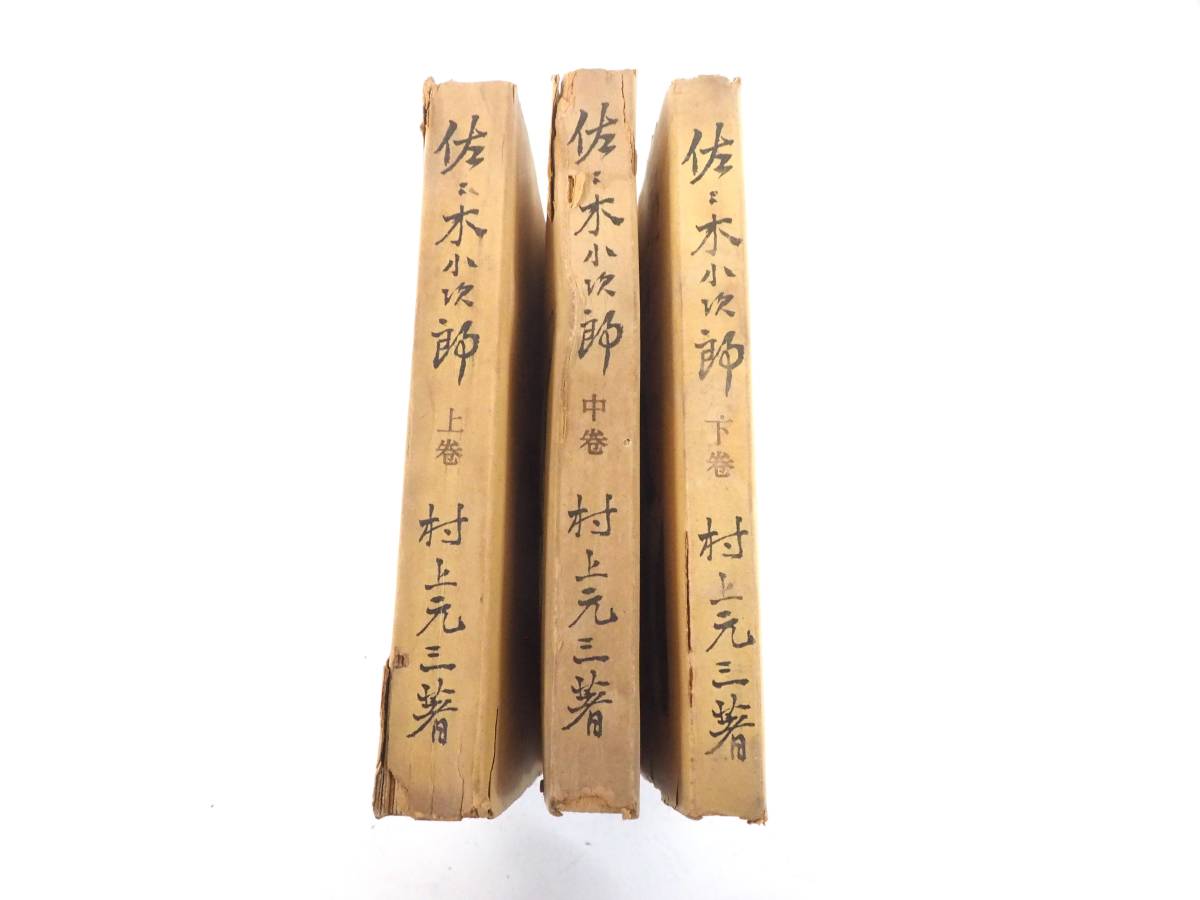 佐々木小次郎 上巻 村上元三著
佐々木小次郎 中巻 村上元三著
佐々木小次郎 下巻 村上元三著